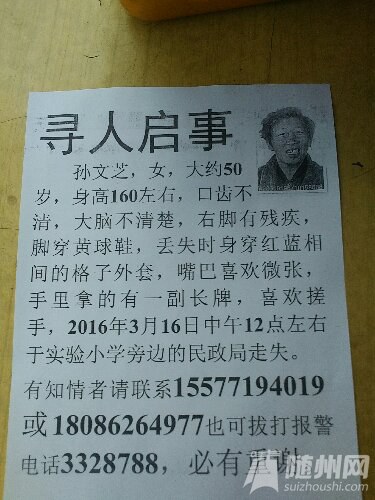 寻人启事
孙文芝，女，大约50
岁，身高160左右，口齿不
清，大脑不清楚，右脚有残疾，
脚穿黄球鞋，丢失时身穿红蓝相
间的格子外套，嘴巴喜欢微张，
手里拿的有一副长牌，喜欢搓
手，2016年3月16日中午12点左右
于实验小学旁边的民政局走失。
有知情者请联系15577194019
或18086264977也可拔打报警
电话3328788，必有重谢
随州网
suizhoushi.com